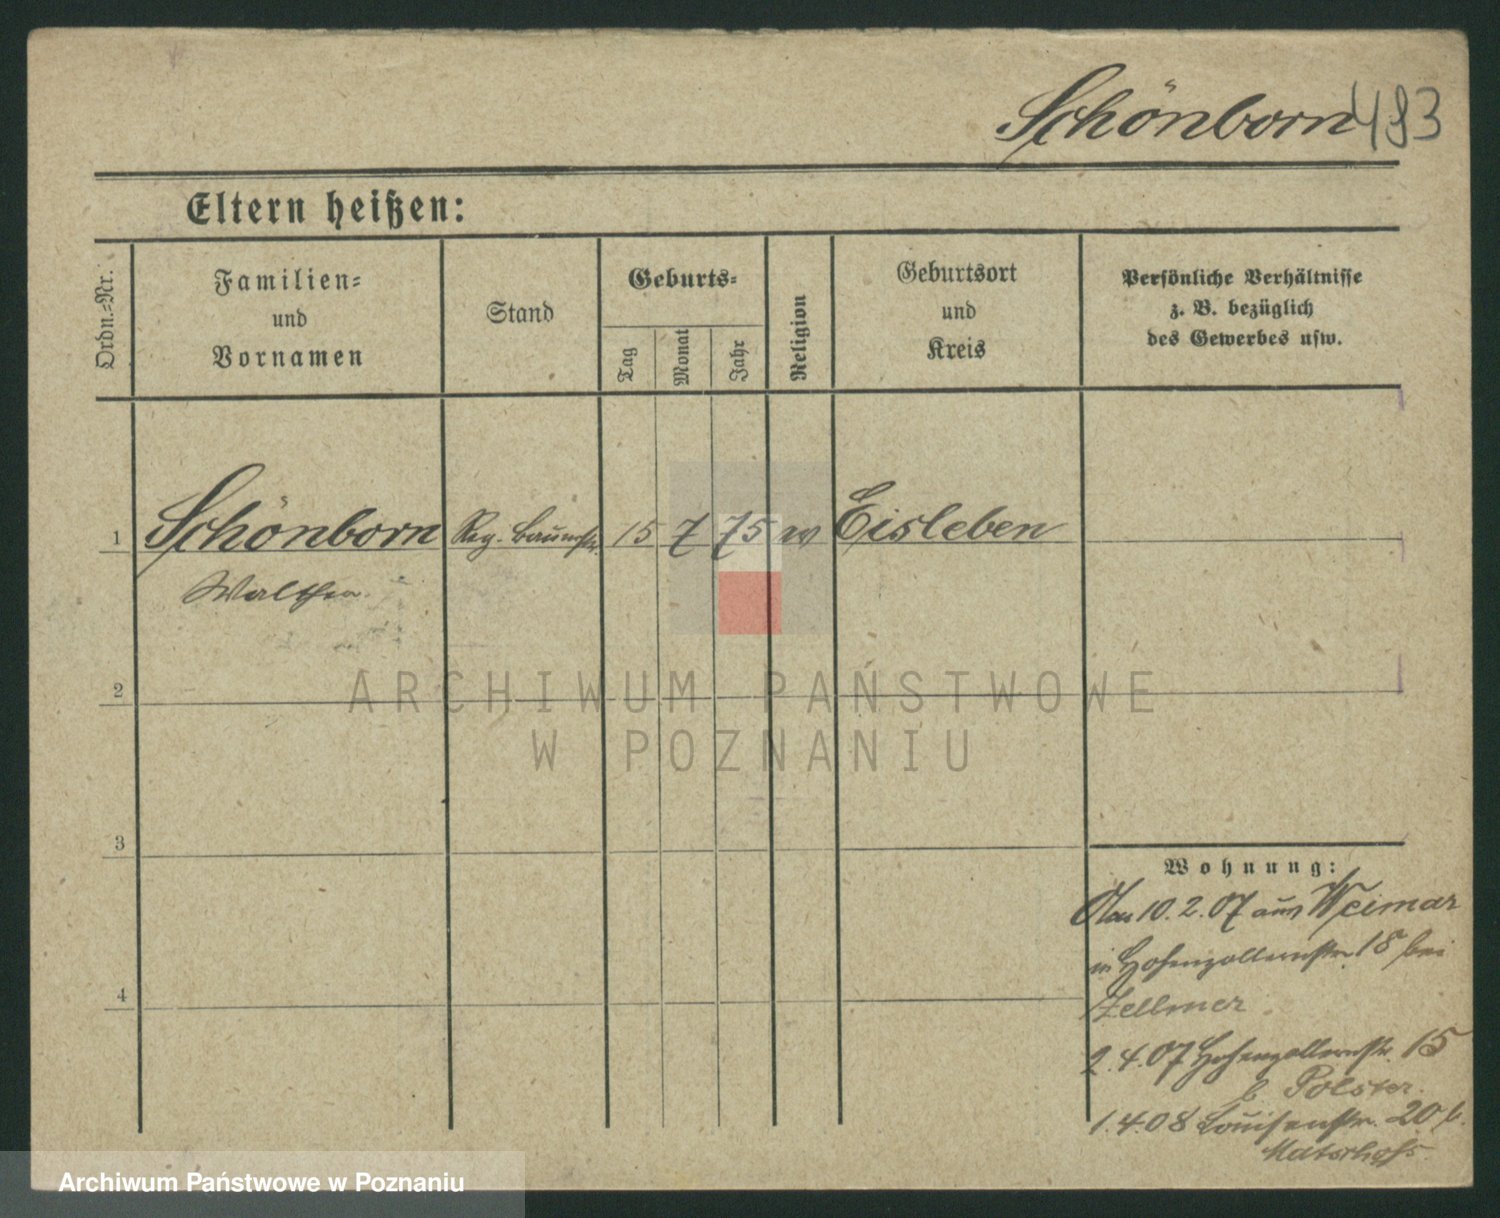 Schönborn 483
Eltern heißen:
Ordn.=Nr.
Familien=
und
Vornamen
Stand
Geburts=
Tag
Monat
Jahr
Religion
Geburtsort
und
Kreis
Persönliche Verhältnisse
z. B. bezüglich
des Gewerbes usw.
1 Schönborn Reg. Baumstr. 15 7 75 ev Eisleben
Walther
2
3
4
Wohnung:
10.2.07 aus Weimar
in Hohenzollernstr. 18 bei
Zellmer
2.4.07 Hohenzollernstr. 15
b Polster.
1.4.08 Louisenstr. 20 b.
ARCHIWUM PAŃSTWOWE
W POZNANIU
Archiwum Państwowe w Poznaniu